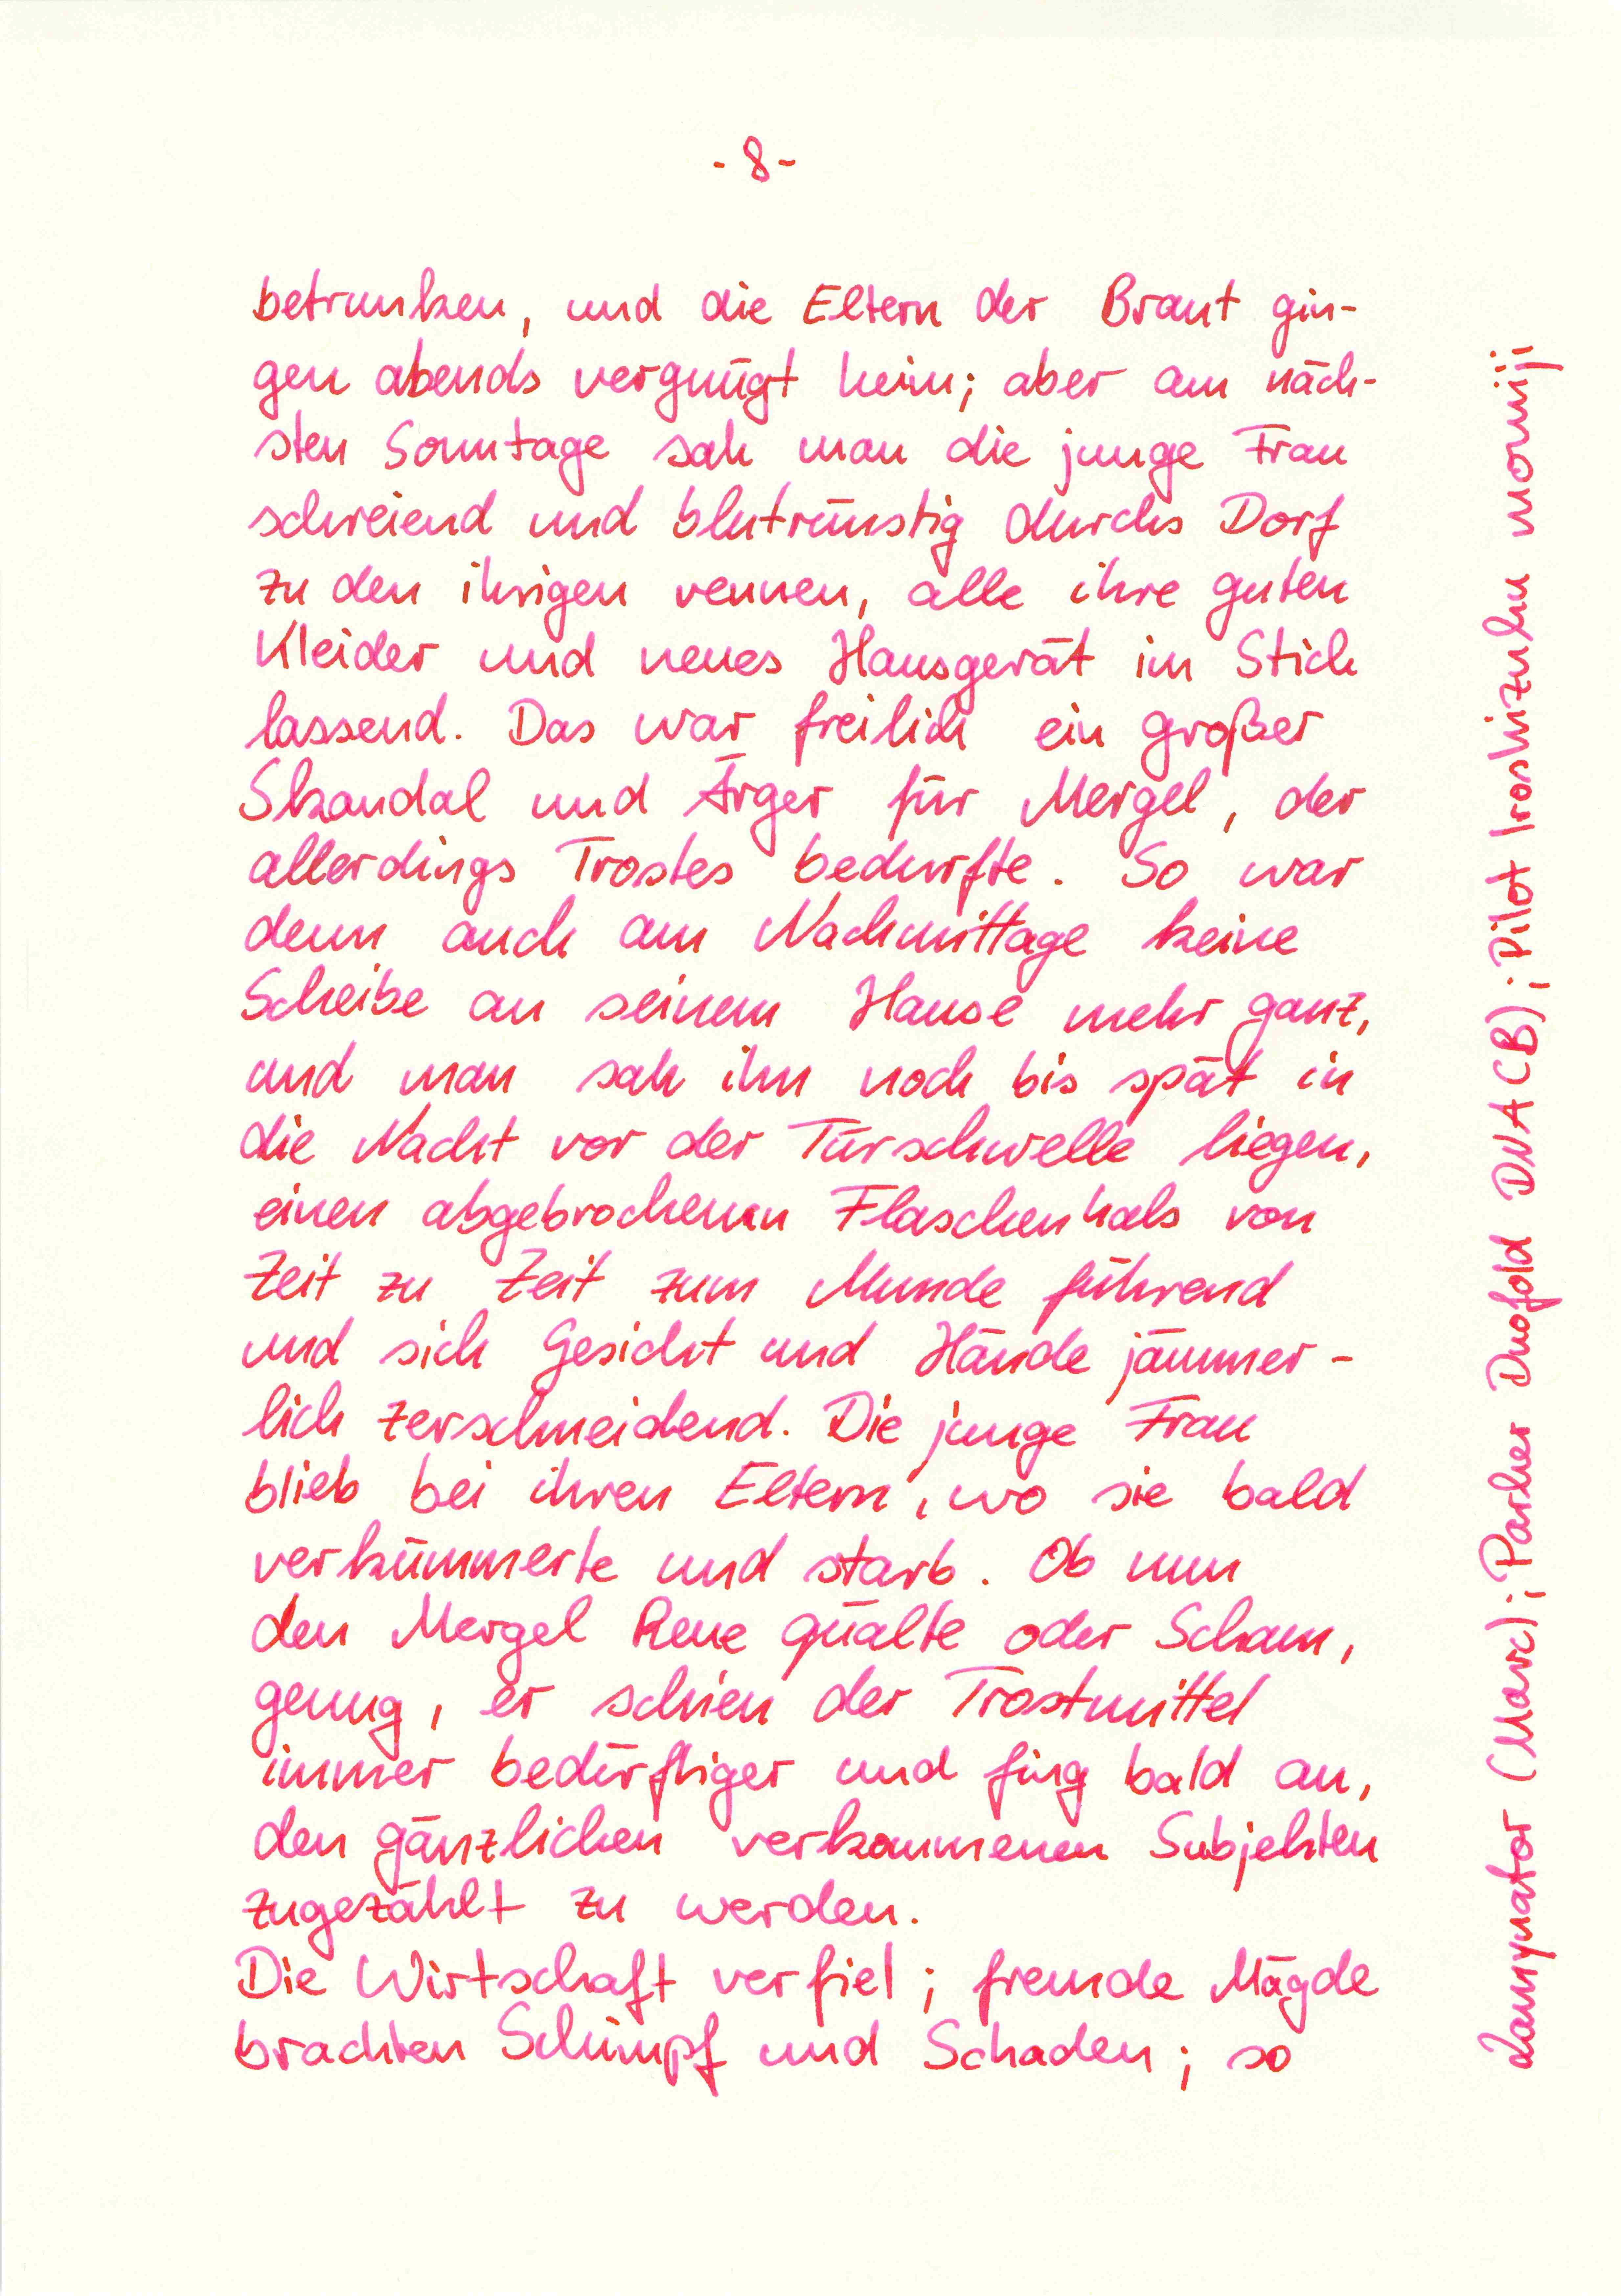 - 8 -
betrunken, und die Eltern der Braut gin-
gen abends vergnügt heim; aber am näch-
sten Sonntage sah man die junge Frau
schreiend und blutrünstig durchs Dorf
zu den ihrigen rennen, alle ihre guten
Kleider und neues Hausgerät im Stich
lassend. Das war freilich ein großer
Skandal und Ärger für Mergel, der
allerdings Trostes bedurfte. So war
denn auch am Nachmittage keine
Scheibe an seinem Hause mehr ganz,
und man sah ihn noch bis spät in
die Nacht vor der Türschwelle liegen,
einen abgebrochenen Flaschenhals von
Zeit zu Zeit zum Munde führend
und sich Gesicht und Hände jämmer-
lich zerschneidend. Die junge Frau
blieb bei ihren Eltern, wo sie bald
verkümmerte und starb. Ob nun
den Mergel Reue quälte oder Scham,
genug, er schien der Trostmittel
immer bedürftiger und fing bald an,
den gänzlichen verkommenen Subjekten
zugezählt zu werden.
Die Wirtschaft verfiel; fremde Mägde
brachten Schimpf und Schaden; so
Lamynator (Marc); Parker Duofold DNA CB); Pilot Iroshizuku momiji